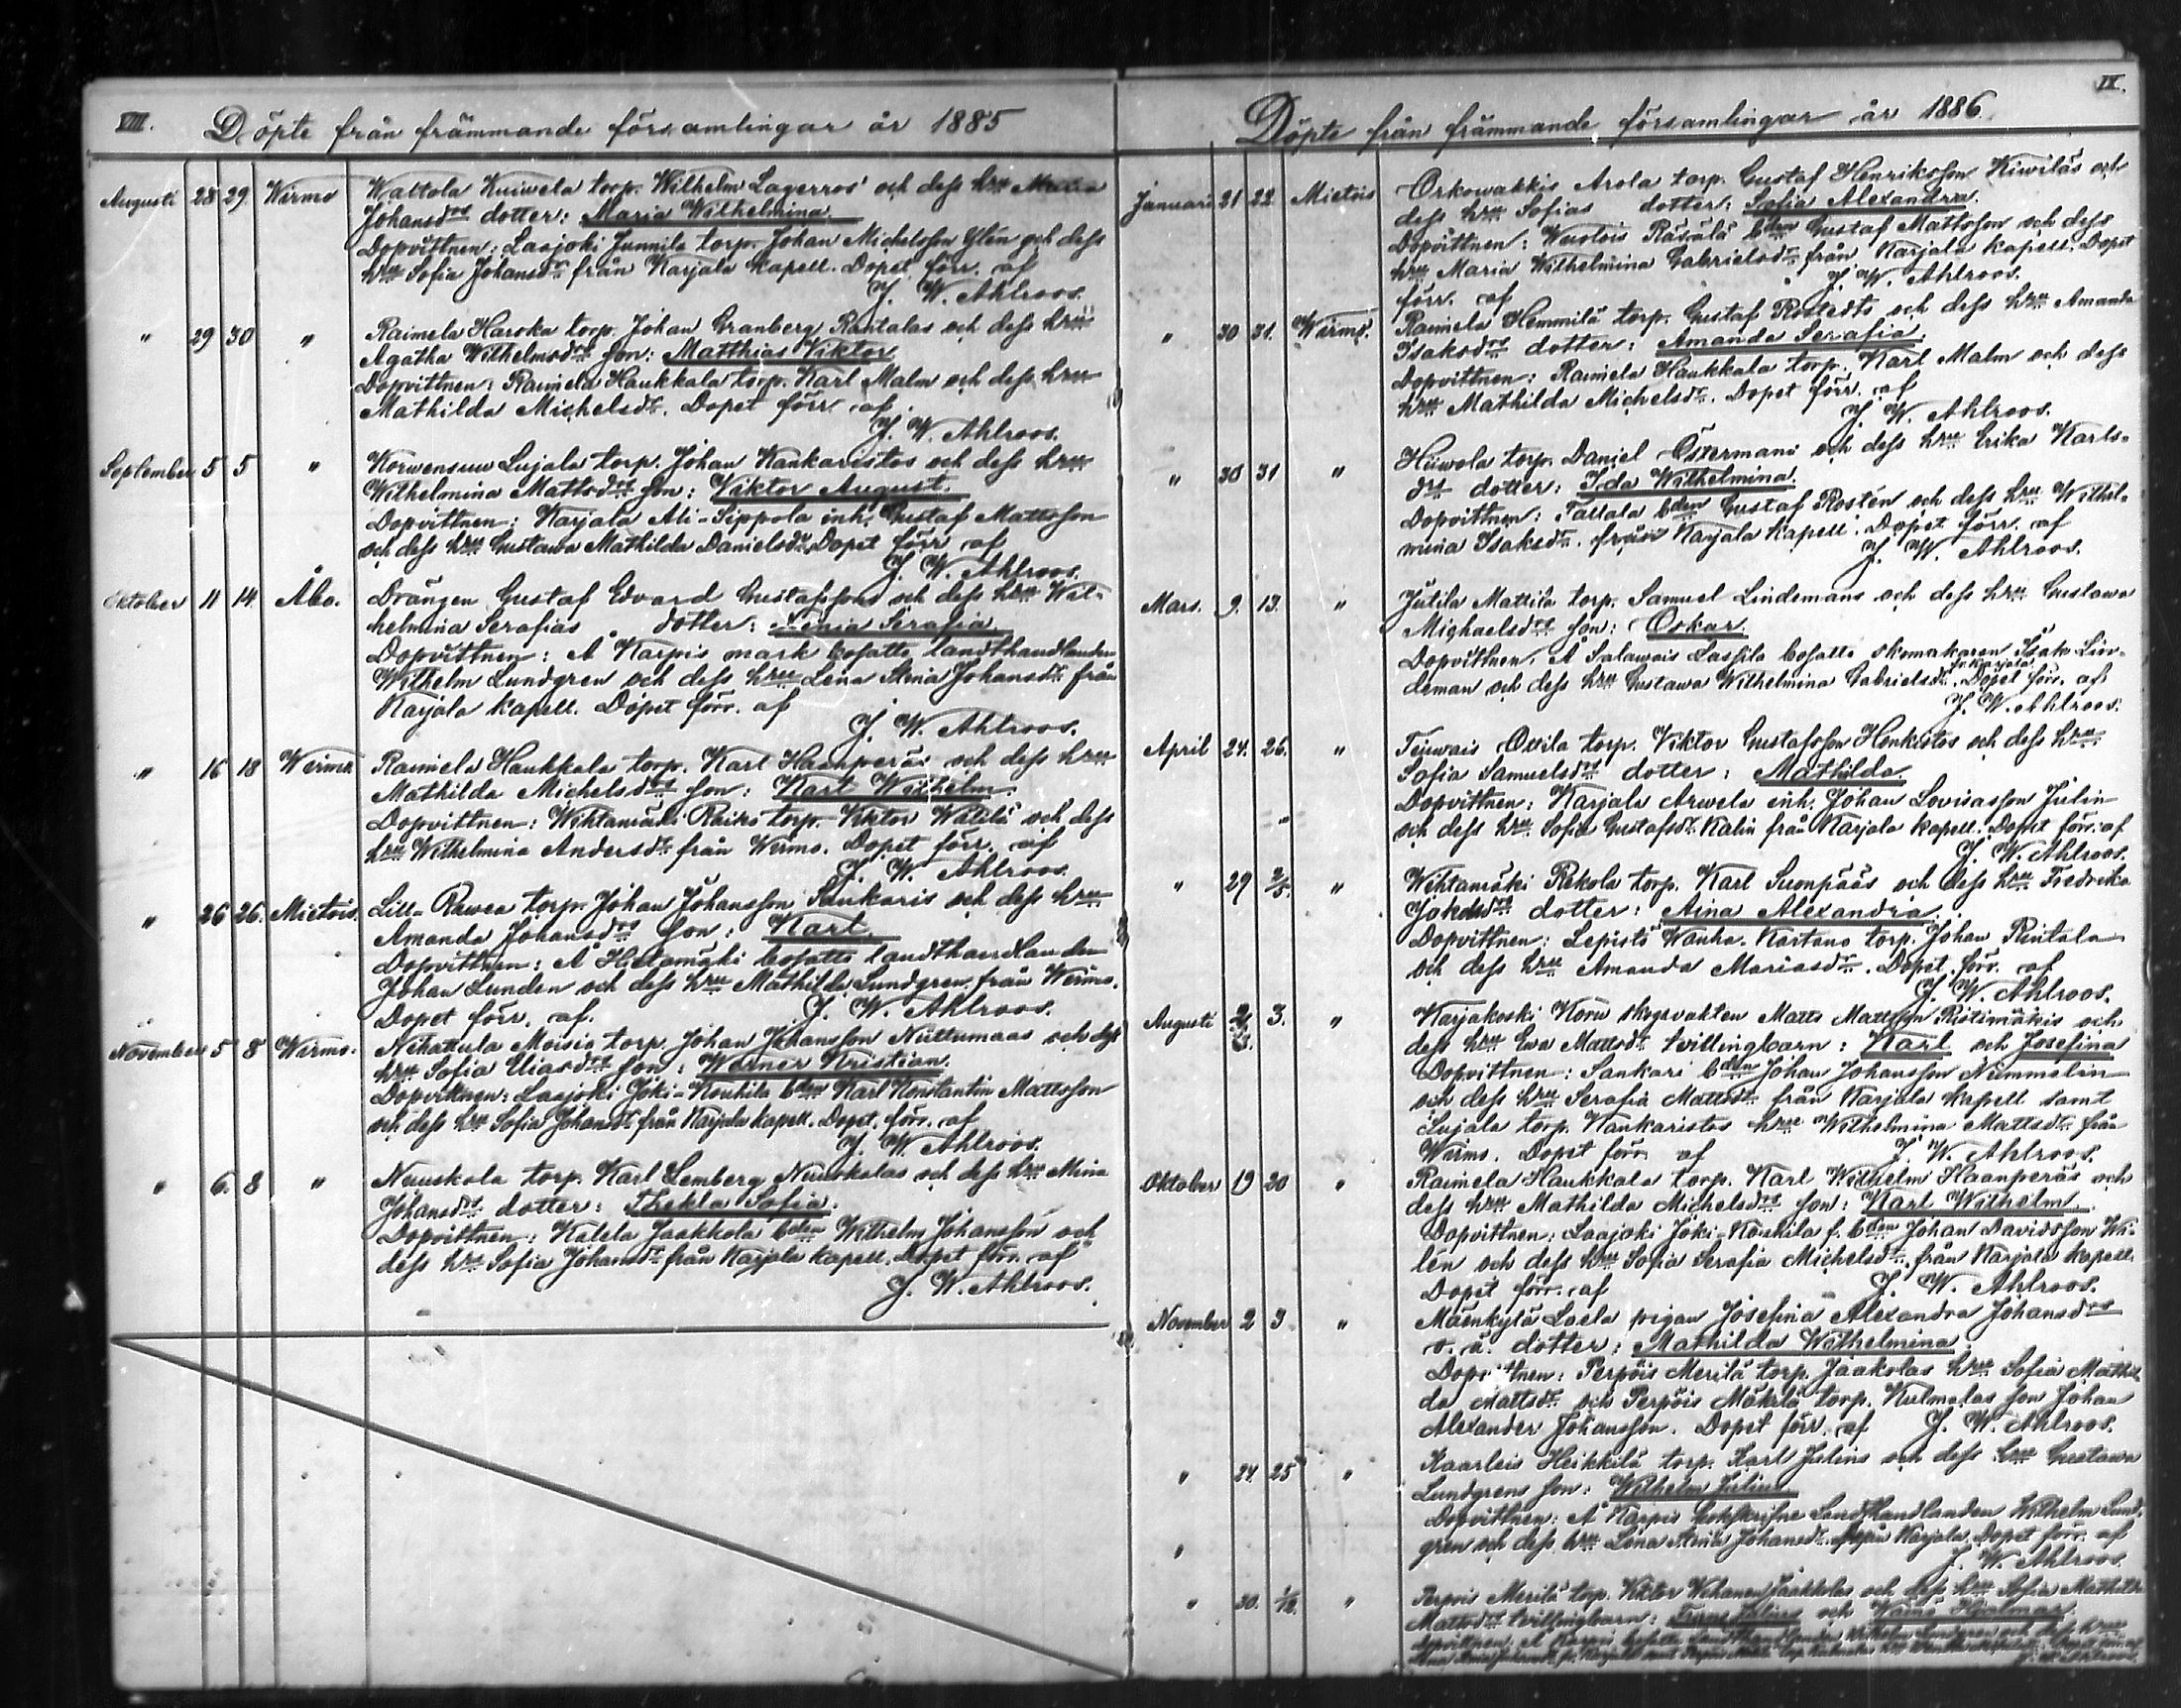 VIII. Döpte från främmande församlingar år 1885
Augusti 28 29 Wirmo Wattola Kuiwela torp. Wilhelm Lagerros' och dess hru Maria
Johansdrs dotter: Maria Wilhelmina.
Dopvittnen: Laajoki Junnila torp. Johan Michelsson Glén och dess
hru Sofia Johansdr från Karjala kapell. Dopet förr. af
J. W. Ahlroos.
" 29 30 " Raimela Haroka torp. Johan Granberg Rantalas och dess hru
Agatha Wilhelmsdrs son: Matthias Viktor
Dopvittnen: Raimela Haukkala torp. Karl Malm och dess hru
Mathilda Michelsdr. Dopet förr. af
J. W. Ahlroos.
September 5 5 " Korwensuu Lujala torp. Johan Kankaristos och dess hru
Wilhelmina Mattsdrs son: Viktor August.
Dopvittnen: Karjala Ali-Sippola inh. Gustaf Mattsson
och dess hru Gustawa Mathilda Danielsdr. Dopet förr. af
J. W. Ahlroos.
Oktober 11 14. Åbo. Drängen Gustaf Edvard Gustafssons och dess hru Wil-
helmina Serafias dotter: Serafia.
Dopvittnen: Å Karpis mark bosatte landthandlanden
Wilhelm Lundgren och dess hru Lena Stina Johansdr från
Karjala kapell. Dopet förr. af
J. W. Ahlroos.
" 16 18 Wirmo Raimela Haukkala torp. Karl Haanperäs och dess hru
Mathilda Michelsdrs son: Karl Wilhelm.
Dopvittnen: Wihtamäki Raiko torp. Viktor Wälilä och dess
hru Wilhelmina Andersdr från Wirmo. Dopet förr. af
J. W. Ahlroos.
" 26 26. Mietois. Lill-Rawea torp. Johan Johansson Sankaris och dess hru
Amanda Johansdrs son: Karl.
Dopvittnen: Å Hietamäki bosatte landthandlanden
Johan Lunden och dess hru Mathilda Lundgren från Wirmo.
Dopet förr. af. J. W. Ahlroos.
November 5 8 Wirmo. Nihattula Moisio torp. Johan Johansson Niittumaas och dess
hru Sofia Eliasdrs son: Werner Kristian.
Dopvittnen: Laajoki Joki-Kouhila bden Karl Konstantin Mattsson
och dess hru Sofia Johansdr från Karjala kapell. Dopet. förr. af
J. W. Ahlroos.
" 6. 8 " Nuuskola torp. Karl Lemberg Nuuskolas och dess hru Mina
Johansdrs dotter: Thekla Sofia.
Dopvittnen: Kalela Jaakkola bden Wilhelm Johansson och
dess hru Sofia Johansdr från Karjala kapell. Dopet förr. af
J. W. Ahlroos.
IX.
Döpte från främmande församlingar år 1886.
Januari 21 22 Mietois Orkowakkis Arola torp. Gustaf Henriksson Kiwiläs och
dess hru Sofias dotter: Sofia Alexandra.
Dopvittnen: Wustois Räsälä bden Gustaf Mattsson och dess
hru Maria Wilhelmina Gabrielsdr från Karjala kapell. Dopet
förr. af J. W. Ahlroos.
" 30 31. Wirmo. Raimela Hemmilä torp. Gustaf Rostedts och dess hru Amanda
Isaksdrs dotter: Amanda Serafia.
Dopvittnen: Raimela Haukkala torp. Karl Malm och dess
hru Mathilda Michelsdr. Dopet förr. af
J. W. Ahlroos.
" 30 31 " Hüwola torp. Daniel Östermans och dess hru Erika Karls-
drs dotter: Ida Wilhelmina.
Dopvittnen: Pallala bden Gustaf Rostén och dess hru Wilhel-
mina Isaksdr. från Karjala kapell. Dopet förr. af
J. W. Ahlroos.
Mars. 9. 13. " Jutila Mattila torp. Samuel Lindemans och dess hru Gustawa
Michaelsdrs son: Oskar.
Dopvittnen. Å Salawais Lassila bosatte skomakaren Isak Lin-
deman och dess hru Gustawa Wilhelmina Gabrielsdr fr. Karjala. Dopet förr. af.
J. W. Ahlroos.
April 24. 26. " Teuwais Ottila torp. Viktor Gustafsson Honkistos och dess hru
Sofia Samuelsdrs dotter: Mathilda.
Dopvittnen: Karjala Arwela inh. Johan Lovisasson Julin
och dess hru Sofia Gustafsdr Kalin från Karjala kapell. Dopet förr. af
J. W. Ahlroos.
" 29 2/5. " Wihtamäki Rekola torp. Karl Suonpääs och dess hru Fredrika
Jakobsdrs dotter: Aina Alexandra.
Dopvittnen: Lepistö Wanha-Kartano torp. Johan Rintala
och dess hru Amanda Mariasdr. Dopet förr. af
J. W. Ahlroos.
Augusti 3. " Karjakoski Koru skogsvakten Matts Mattsson Ristimäkis och
dess hru Ewa Mattsdr tvillingbarn: Karl och Josefina
Dopvittnen: Sankari bden Johan Johansson Nummelin
och dess hru Serafia Mattsdr från Karjala kapell samt
Lujala torp. Kankaristos hru Wilhelmina Mattsdr från
Wirmo. Dopet förr. af J. W. Ahlroos.
Oktober 19 20 " Raimela Haukkala torp. Karl Wilhelm Haanperäs och
dess hru Mathilda Michelsdrs son: Karl Wilhelm.
Dopvittnen: Laajoki Joki-Kouhila f. bden Johan Davidsson Wi-
lén och dess hru Sofia Serafia Michelsdr. från Karjala kapell.
Dopet förr. af J. W. Ahlroos.
November 2 3 " Mäenkylä Laela pigan Josefina Alexandra Johansdrs
o. ä. dotter: Mathilda Wilhelmina
Dopvittnen: Perpöis Merilä torp. Jaakolas hru Sofia Mathil-
da Mattsdr och Perpöis Mäkilä torp. Kulmalas son Johan
Alexander Johansson. Dopet förr. af J. W. Ahlroos.
" 24 25 " Kaarleis Heikkilä torp. Karl Julins och dess hru Gustawa
Lundgrens son: Wilhelm Julius
Dopvittnen: Å Karpis Landthandlanden Wilhelm Lund-
gren och dess hru Lena Stina Johansdr. från Karjala. Dopet förr. af
J. W. Ahlroos.
" 30. 1/12. " Perpois Merilä torp. Viktor Jaakkolas och dess hru Sofia Mathilda
Mattsdrs tvillingbarn: Julius och Hjalmar.
Dopvittnen: Å Karpis bosatte Landthandlanden Wilhelm Lundgren och dess hru
J. W. Ahlroos.